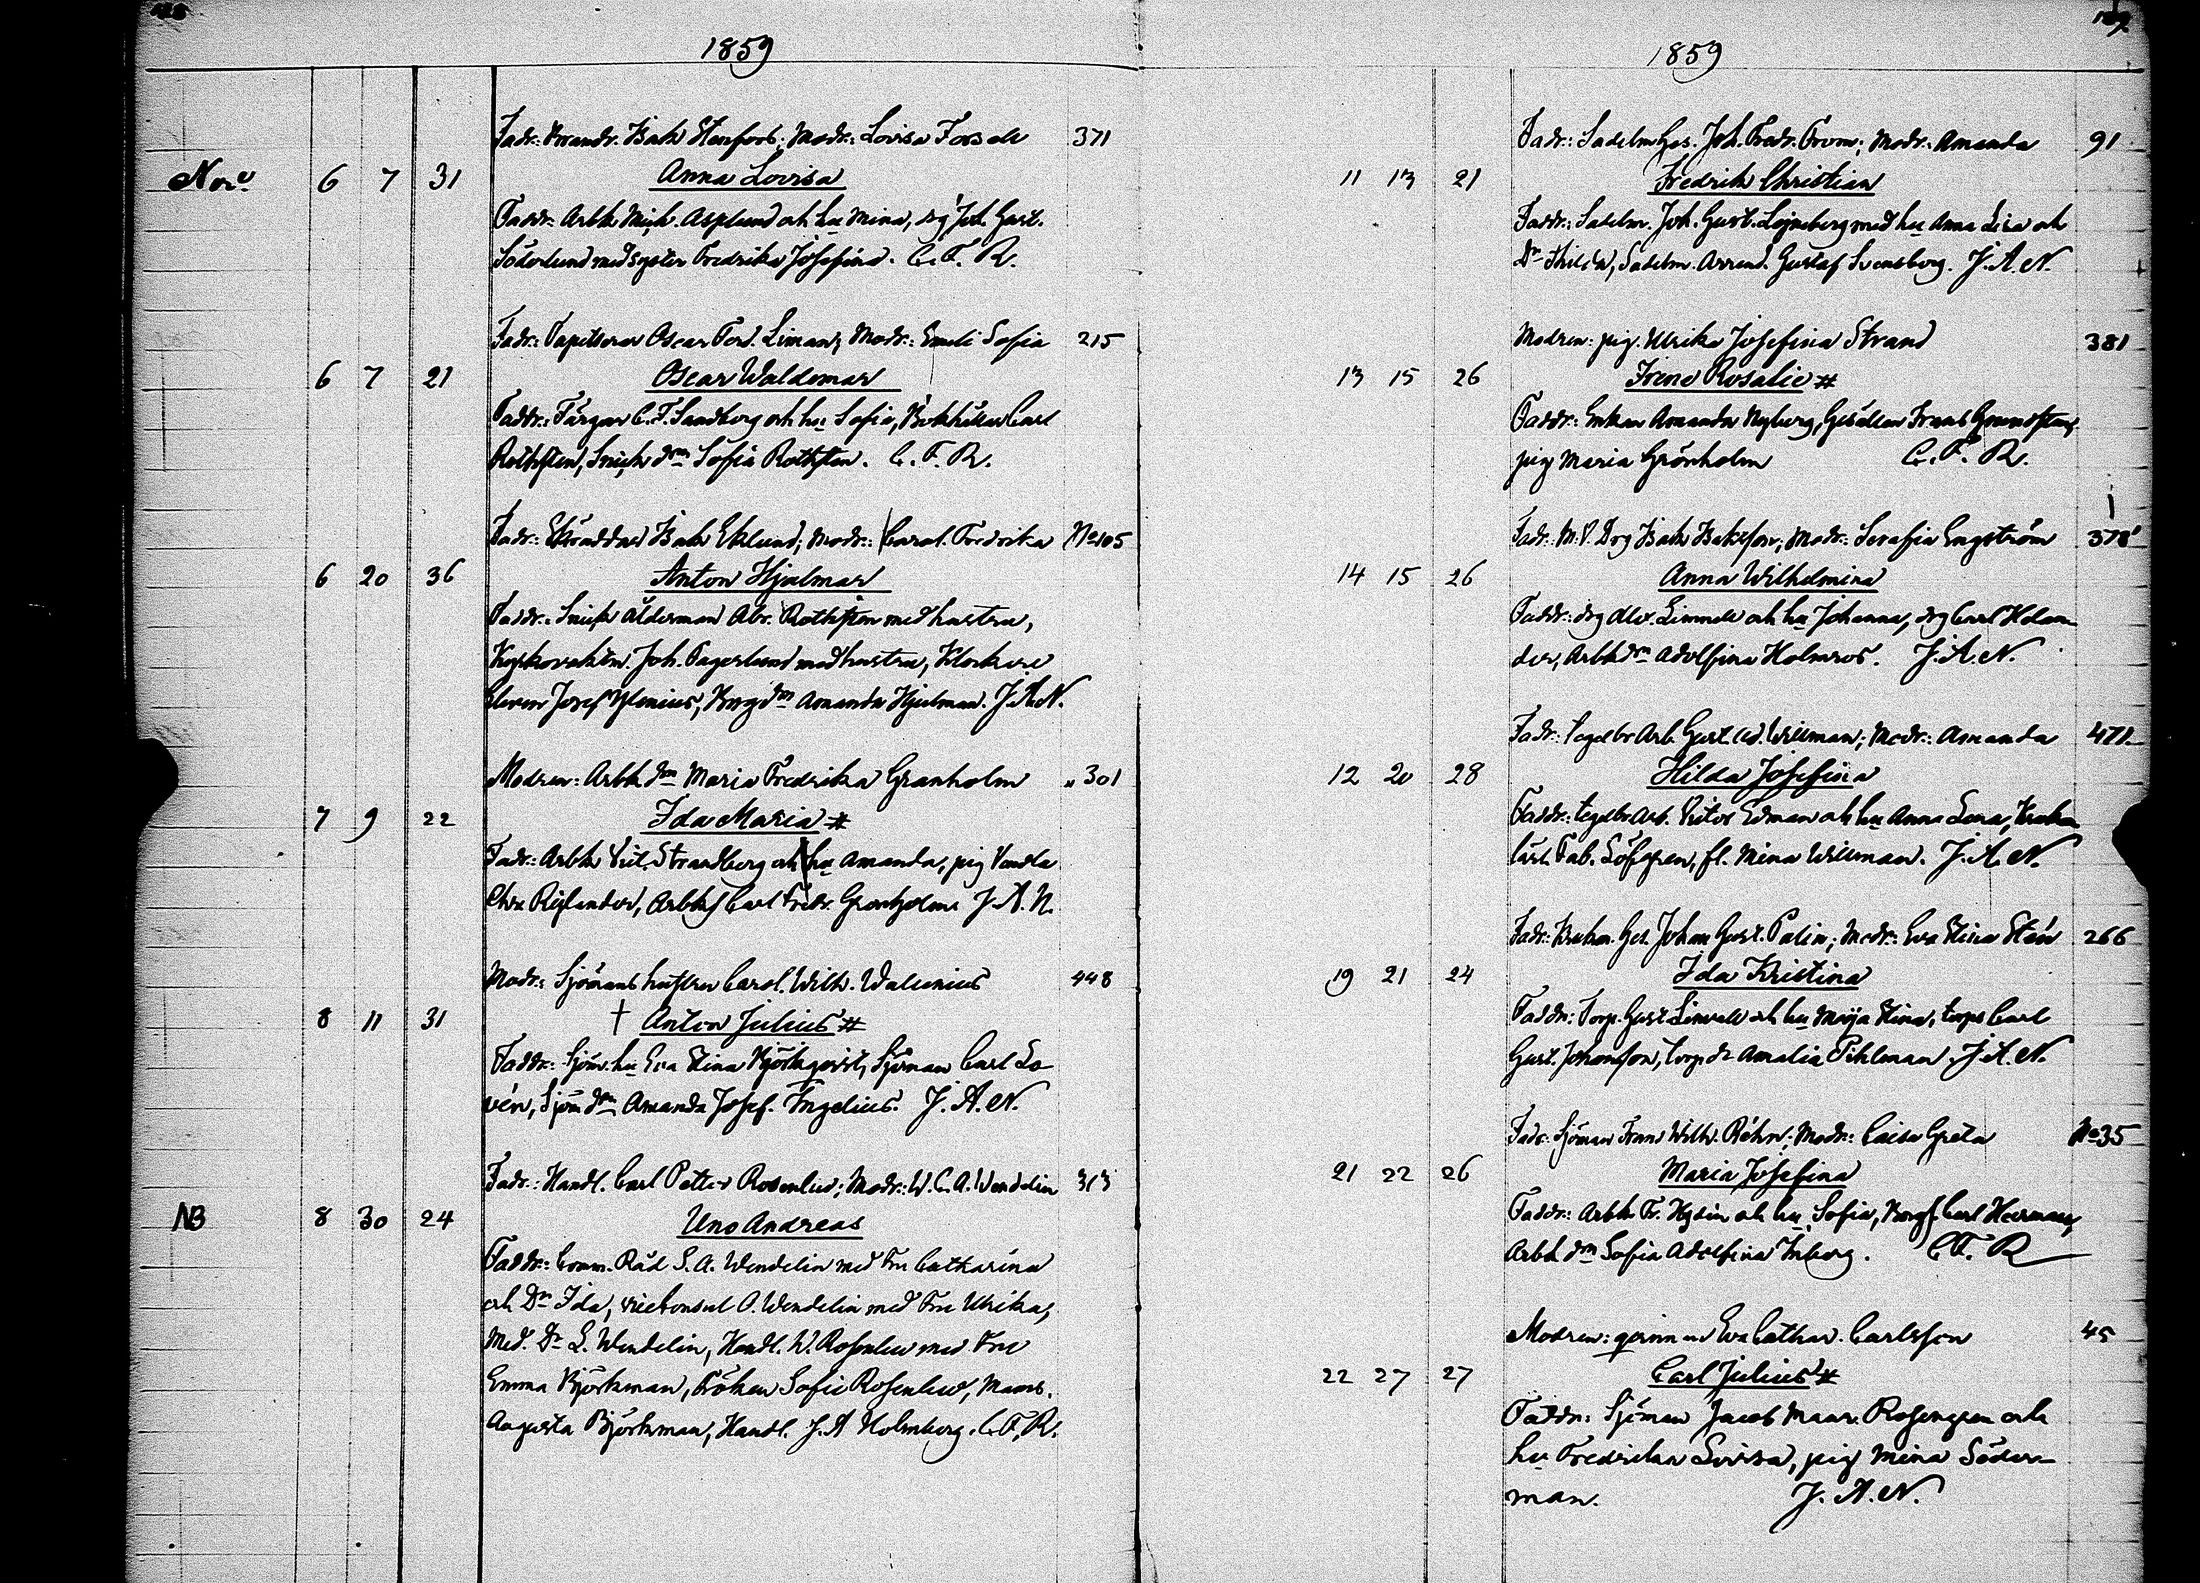 1859
Fadr: Isak Stenfors; Modr: Lovisa 371
Novr 6 7 31 Anna Lovisa
Faddr: Arbk Mich. Asplund och hu Mina, drg Joh. Gust.
Söderlund med syster Fredrika Josefina. C. F. R.
Fadr: Oscar Ferd. Liman; Modr: Emeli Sofia 215
6 7 21 Oscar Waldemar
Faddr: Färgar C. F. Sandberg och hu Sofia, Bokhållar Carl
Rothsten, Snick drn Sofia Rothsten. C. F. R.
Fadr: Skräddar Isak Eklund; Modr: Carol. Fredrika No 105
6 20 36 Anton Hjalmar
Faddr: Snick ålderman Abr. Rothsten med hustru,
Joh. Fagerlund med hustru, Klockare
Eleven Josef, Borg. drn Amanda Hjulman. J. A. N.
Modren: Arbk drn Maria Fredrika Granholm " 301
7 9 22 Ida Maria #
Fadr: Arbk Vict. Strandberg och hu Amanda, pig Vendla
Carl Fredr. Granholm J. A. N.
Modr: Sjömans hustru Carol. Wilh. 448
8 11 31 † Anton Julius #
Faddr: Sjöm. hu Eva Stina Björkqvist, Sjöman Carl Lo-
vén, Sjöm drn Amanda Josef. Ingelius. J. A. N.
Fadr: Handl. Carl Petter Rosenlew; Modr: W. C. A. Wendelin 313
NB 8 30 24 Uno Andreas
Faddr: Comm. Råd S. A. Wendelin med Fru Catharina
och Dr Ida, viceConsul O. Wendelin med Fru Ulrika,
Med. Dr L. Wendelin, Handl. W. Rosenlew med Fru
Emma Björkman, Fröken Sofie Rosenlew, Mams.
Augusta Björkman, Handl. J. A Holmberg. C. F. R.
1859
Fadr: Sadelm Ges. Joh. Fredr. From; Modr: Amanda 91
11 13 21 Fredrik Christian
Faddr: Sadelm. Joh. Gust. med hu Anna Lisa och
Dr Thilda, Sadelm. Gustaf Svensberg. J. A. N.
Modren: pig. Ulrika Josefina Strand 381
13 15 26 Irene Rosalie #
Faddr: Enkan Amanda Nyberg, Gesällen Frans
pig Maria Grönholm C. F. R.
Fadr: Drg Isak Isaksson; Modr: Serafia Engström 378
14 15 26 Anna Wilhelmina
Faddr: drg Alex. och hu Johanna, drg Carl Helan-
der, Arbk drn Adolfina Holmros. J. A. N.
Fadr: Tegelbr Arb. Gust. Ad. Willman; Modr: Amanda 471
12 20 28 Hilda Josefina
Faddr: tegelbr Arb. Victor Edman och hu Anna Lena,
Fab. Löfgren, fl. Mina Willman. J. A. N.
Fadr: Ges. Johan Gust. Palin; Modr: Eva Stina Stén 266
19 21 24 Ida Kristina
Faddr: Torp. Gust. och hu Maja Stina, torps Carl
Gust. Johansson, torp. dr Amalia Pihlman. J. A. N.
Fadr: Sjöman Frans Wilh. Rehn; Modr: Caisa Greta No 35
21 22 26 Maria Josefina
Faddr: Arbk Fr. och hu Sofia, Carl
Arbk drn Sofia Adolfina Inberg. C. F. R
Modren: qvinnan Eva Cathar. Carlsson 45
22 27 27 Carl Julius #
Faddr: Sjöman Jacob Maur. Rosengren och
hu Fredrika Lovisa, pig Mina Söder-
man. J. A. N.